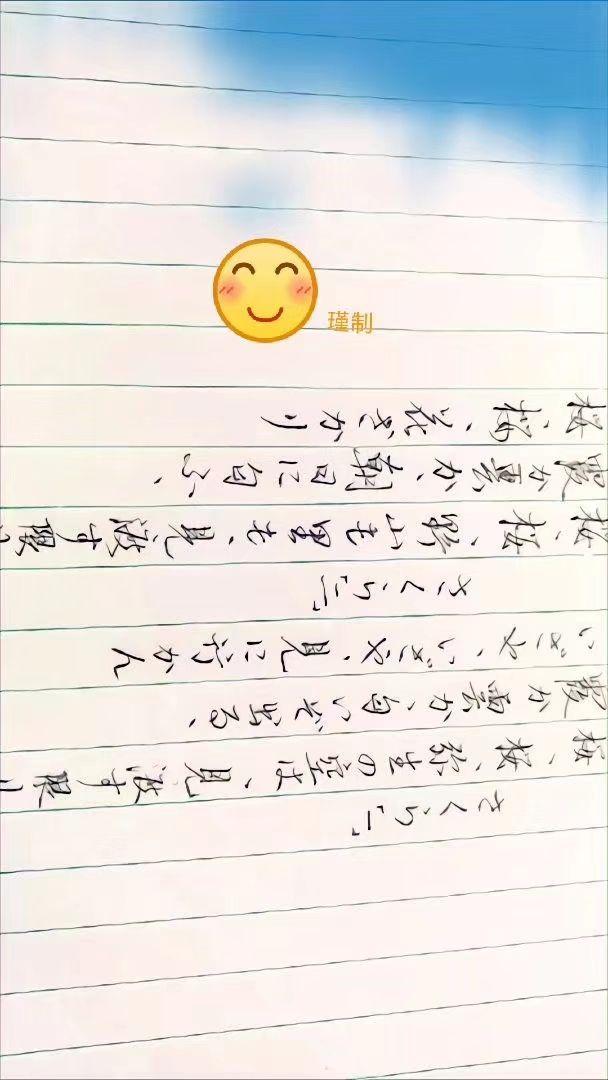 瑾制
さくら「一」
桜、桜、弥生の空は、見渡す限り
霞か雲か、匂いぞ出る、
いざや、いざや、見に行かん
さくら「二」
桜、桜、野山も里も、見渡す限り
霞か雲か、朝日に匂ふ、
桜、桜、花ざかり